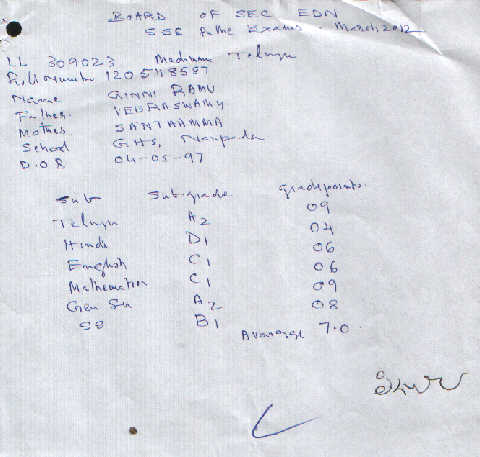 BOARD OF SEC EDN
SSC Public Exams - March, 2012
LL 309023 Medium Telugu
Roll number 1205118597
Name GINNI RAMU
Father VEERASWAMY
Mother SANTHAMMA
School GHS,
D.O.B 04-05-97
Sub Sub grade Grade points
Telugu A2 09
Hindi D1 04
English C1 06
Mathematics C1 06
Gen Sc A2 09
SS B1 08
Average 7.0